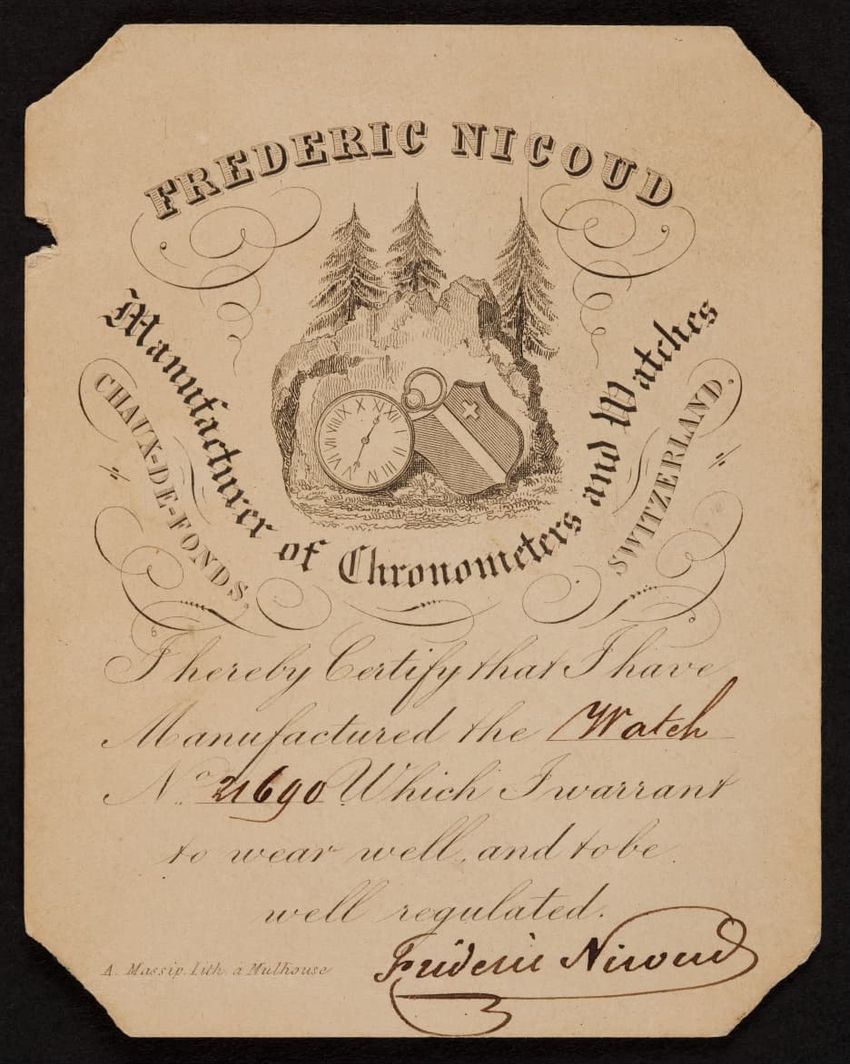 FREDERIC NICOUD
Manufacturer of Chronometers and Watches
CHAUX-DE-FONDS,
SWITZERLAND.
XII I II III IV V VI VII VIII IX X XI
I hereby Certify that I have
Manufactured the Watch
No. 21690 Which I warrant
to wear well, and to be
well regulated.
Frédéric Nicoud
A. Massip. Lith. a Mulhouse